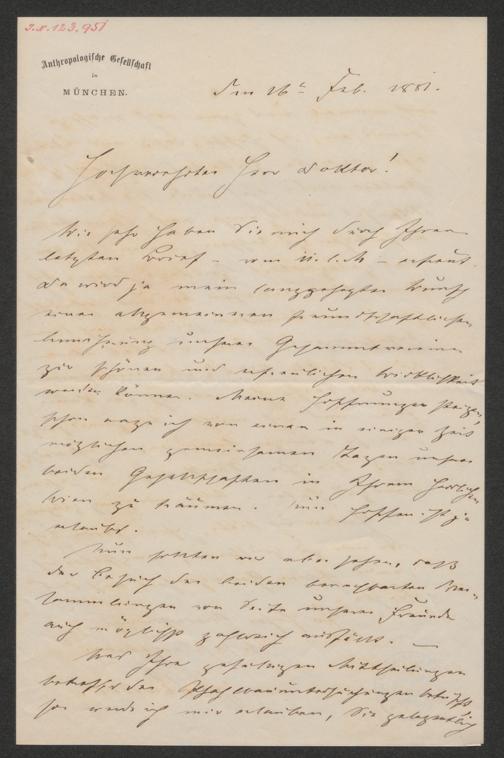 3.X.123.951
Anthropologische Gesellschaft
in
MÜNCHEN.
Den 16ten Feb. 1881.
Hochverehrter Herr Doktor!
Wie sehr haben Sie mich durch Ihren
letzten Brief – vom 11. l. M. – erfreut.
Da wird ja mein langgehegter Wunsch
einer allgemeineren freundschaftlichen
unserer Gesammtvereine
zur schönen und erfreulichen Wirklichkeit
werden können. Meine Hoffnungen steigen,
schon wage ich von einem in einiger Zeit
möglichen gemeinsamen Tagen unserer
beiden Gesellschaften in Ihrem herrlichen
Wien zu träumen. Nun hoffen ist ja
erlaubt.
Nun sollten wir aber sehen, daß
der Besuch der beiden benachbarten Ver-
sammlungen von Seite unserer Freunde
auch möglichst zahlreich ausfällt. —
Was Ihre gefälligen Mittheilungen
betreffs der Pfahlbauuntersuchungen betrifft
so werde ich mir erlauben, Sie gelegentlich